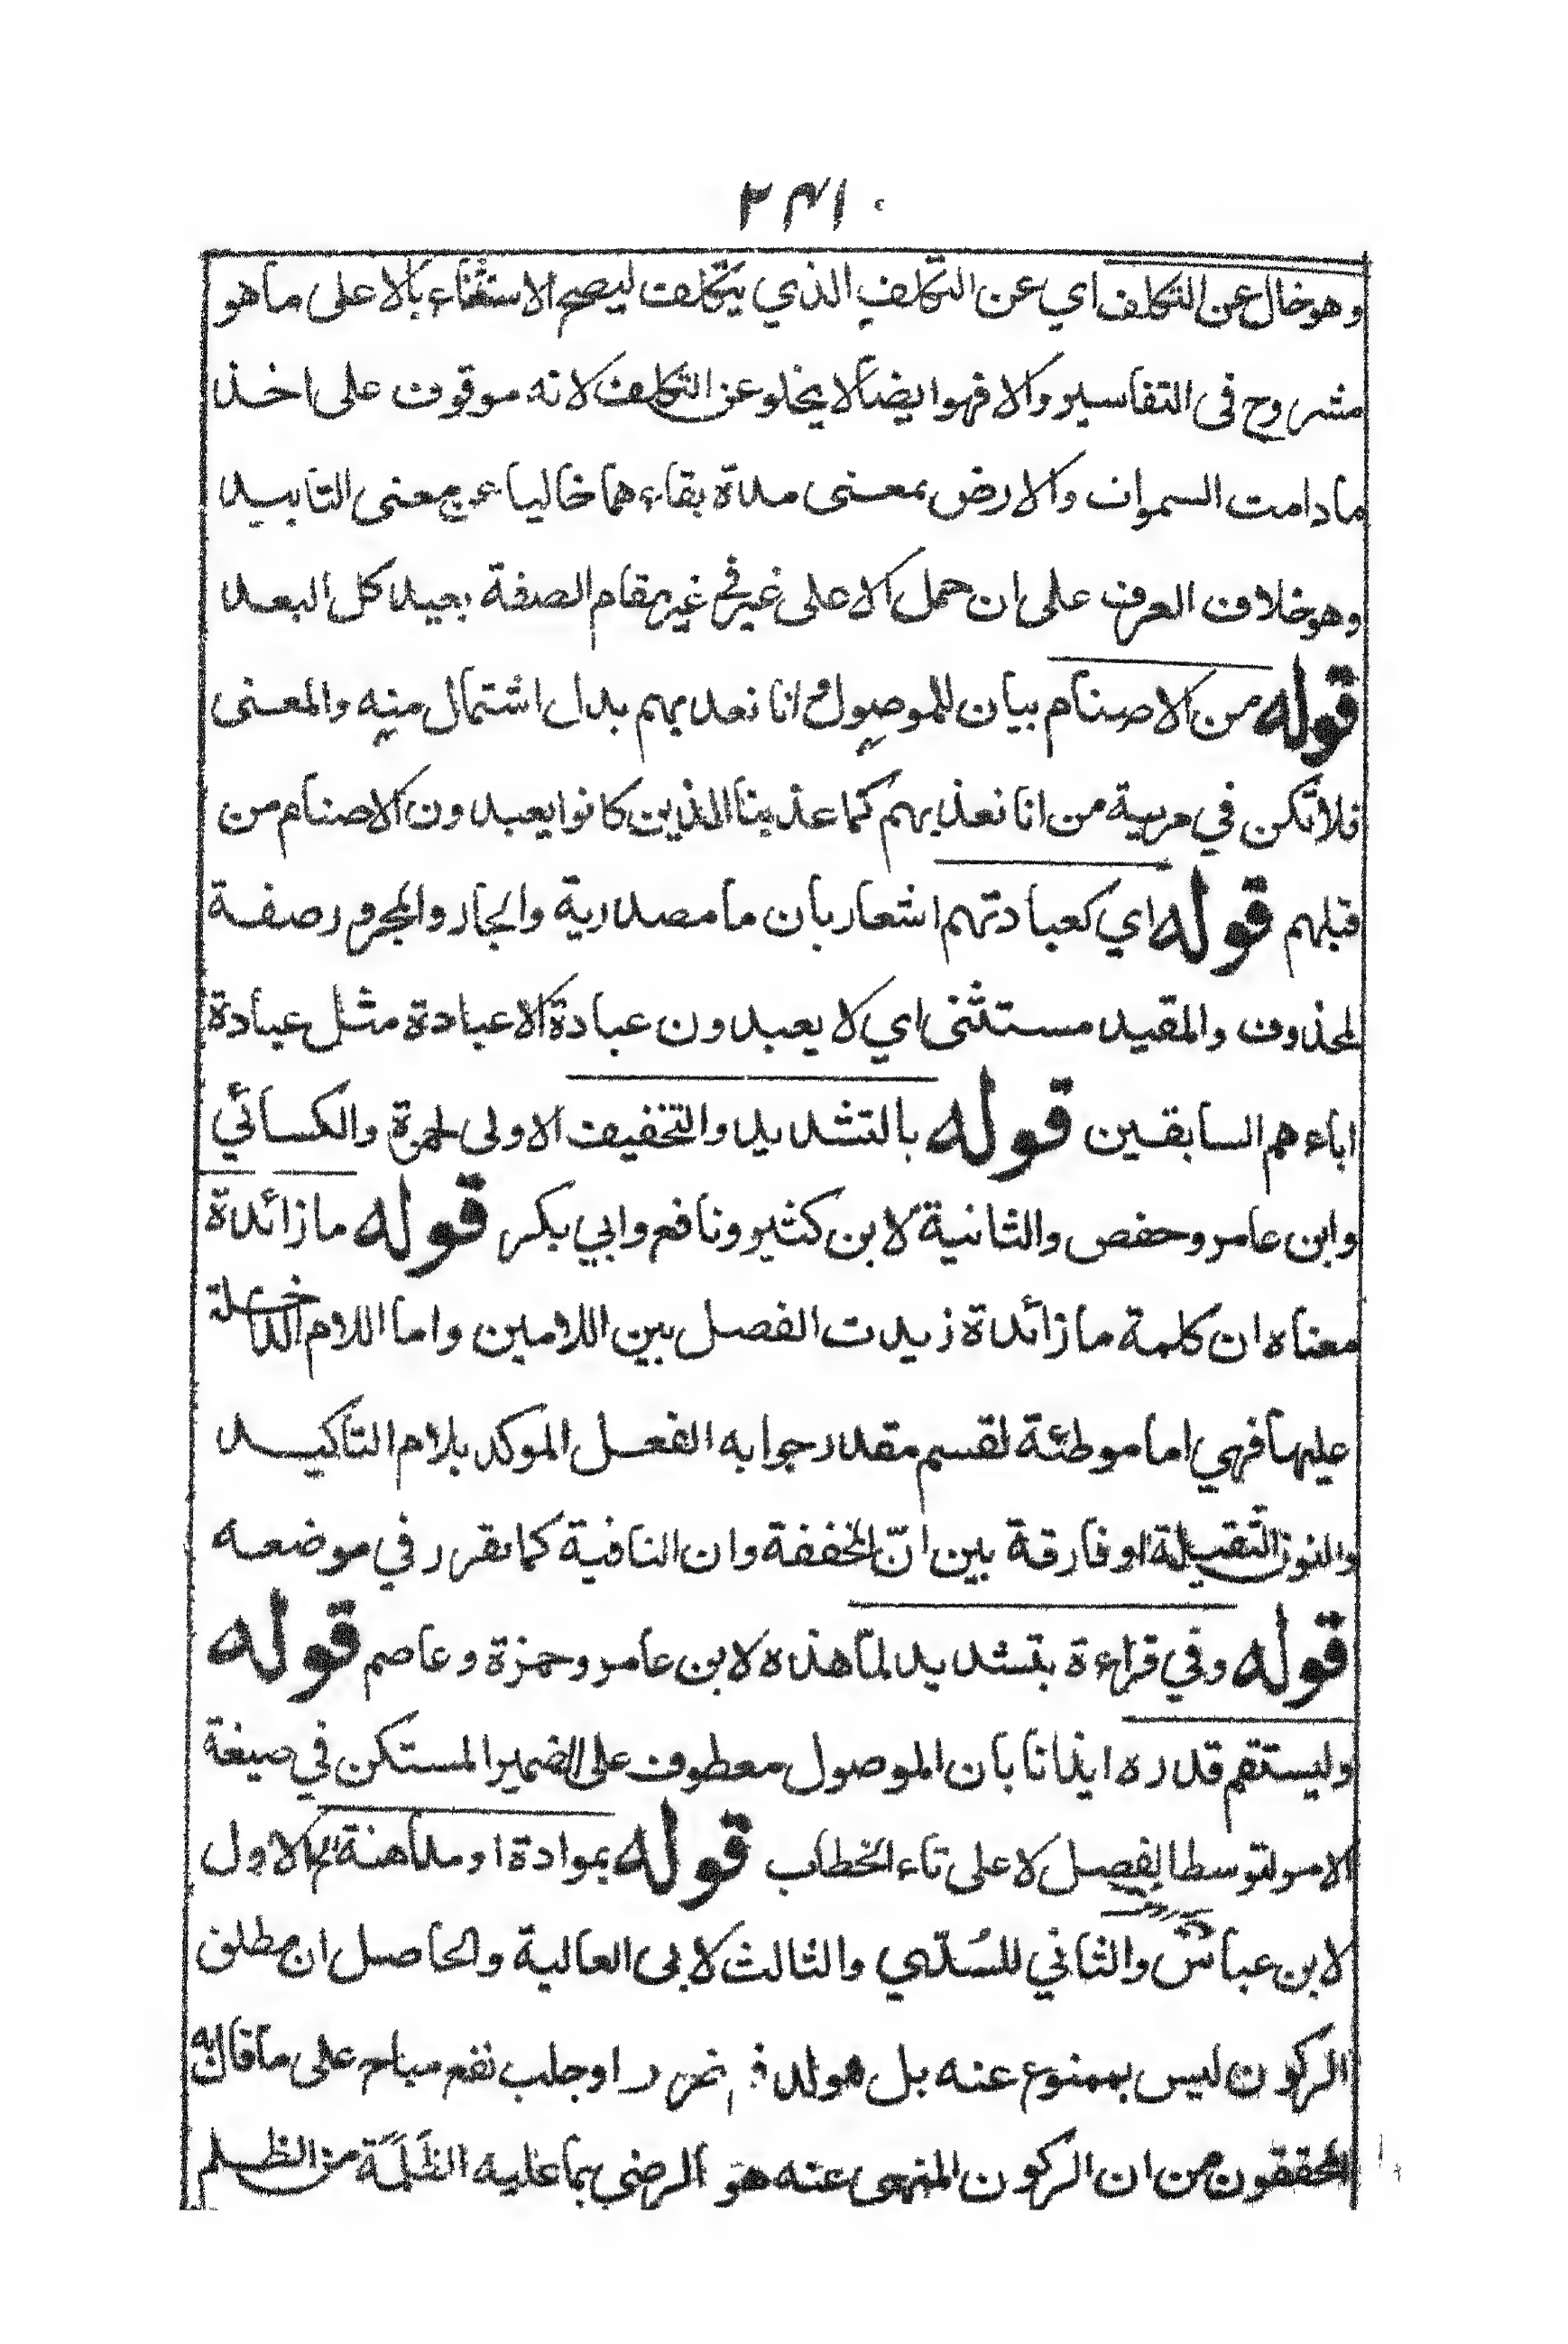 ٢٣١٠
وهو خال عن التكلف اي عن التكلف الذي يتكلف ليصح الاستثناء بالا على ما هو
مشروح في التفاسير والا فهو ايضا لا يخلو عن التكلف لانه موقوف على اخذ
ما دامت السموات والارض بمعنى مدة بقاءهما خاليا عن معنى التابيد
وهو خلاف العرف على ان حمل الا على غير في غير مقام الصفة بعيد كل البعد
قوله من الاصنام بيان للموصول وانا نعذبهم بدل اشتمال منه والمعنى
فلا تكن في مرية من انا نعذبهم كما عذبنا الذين كانوا يعبدون الاصنام من
قبلهم قوله اي كعبادتهم اشعار بان ما مصدرية والجار والمجرور صفة
المحذوف والمقيد مستثنى اي لا يعبدون عبادة الا عبادة مثل عبادة
اباءهم السابقين قوله بالتشديد والتخفيف الاولى لحمزة والكسائي
وابن عامر وحفص والثانية لابن كثير ونافع وابي بكر قوله ما زائدة
معناه ان كلمة ما زائدة زيدت الفصل بين اللامين واما اللام الداخلة
عليها فهي اما موطئة لقسم مقدر جوابه الفعل الموكد بلام التاكيد
والنون الثقيلة او فارقة بين انّ المخففة وان النافية كما تقرر في موضعه
قوله وفي قراءة بتشديد لمّا هذه لابن عامر وحمزة وعاصم قوله
وليستقم قدره ايذانا بان الموصول معطوف على الضمير المستكن في صيغة
الامر لتوسط الفصل لا على تاء الخطاب قوله بموادة او مداهنة الاول
لابن عباس والثاني للسُدّي والثالث لابي العالية والحاصل ان مطلق
الركون ليس بممنوع عنه بل هو لدفع ضرر او جلب نفع مباح على ما قال به
المحققون من ان الركون المنهي عنه هو الرضى بما عليه الظَلَمَة من الظلم